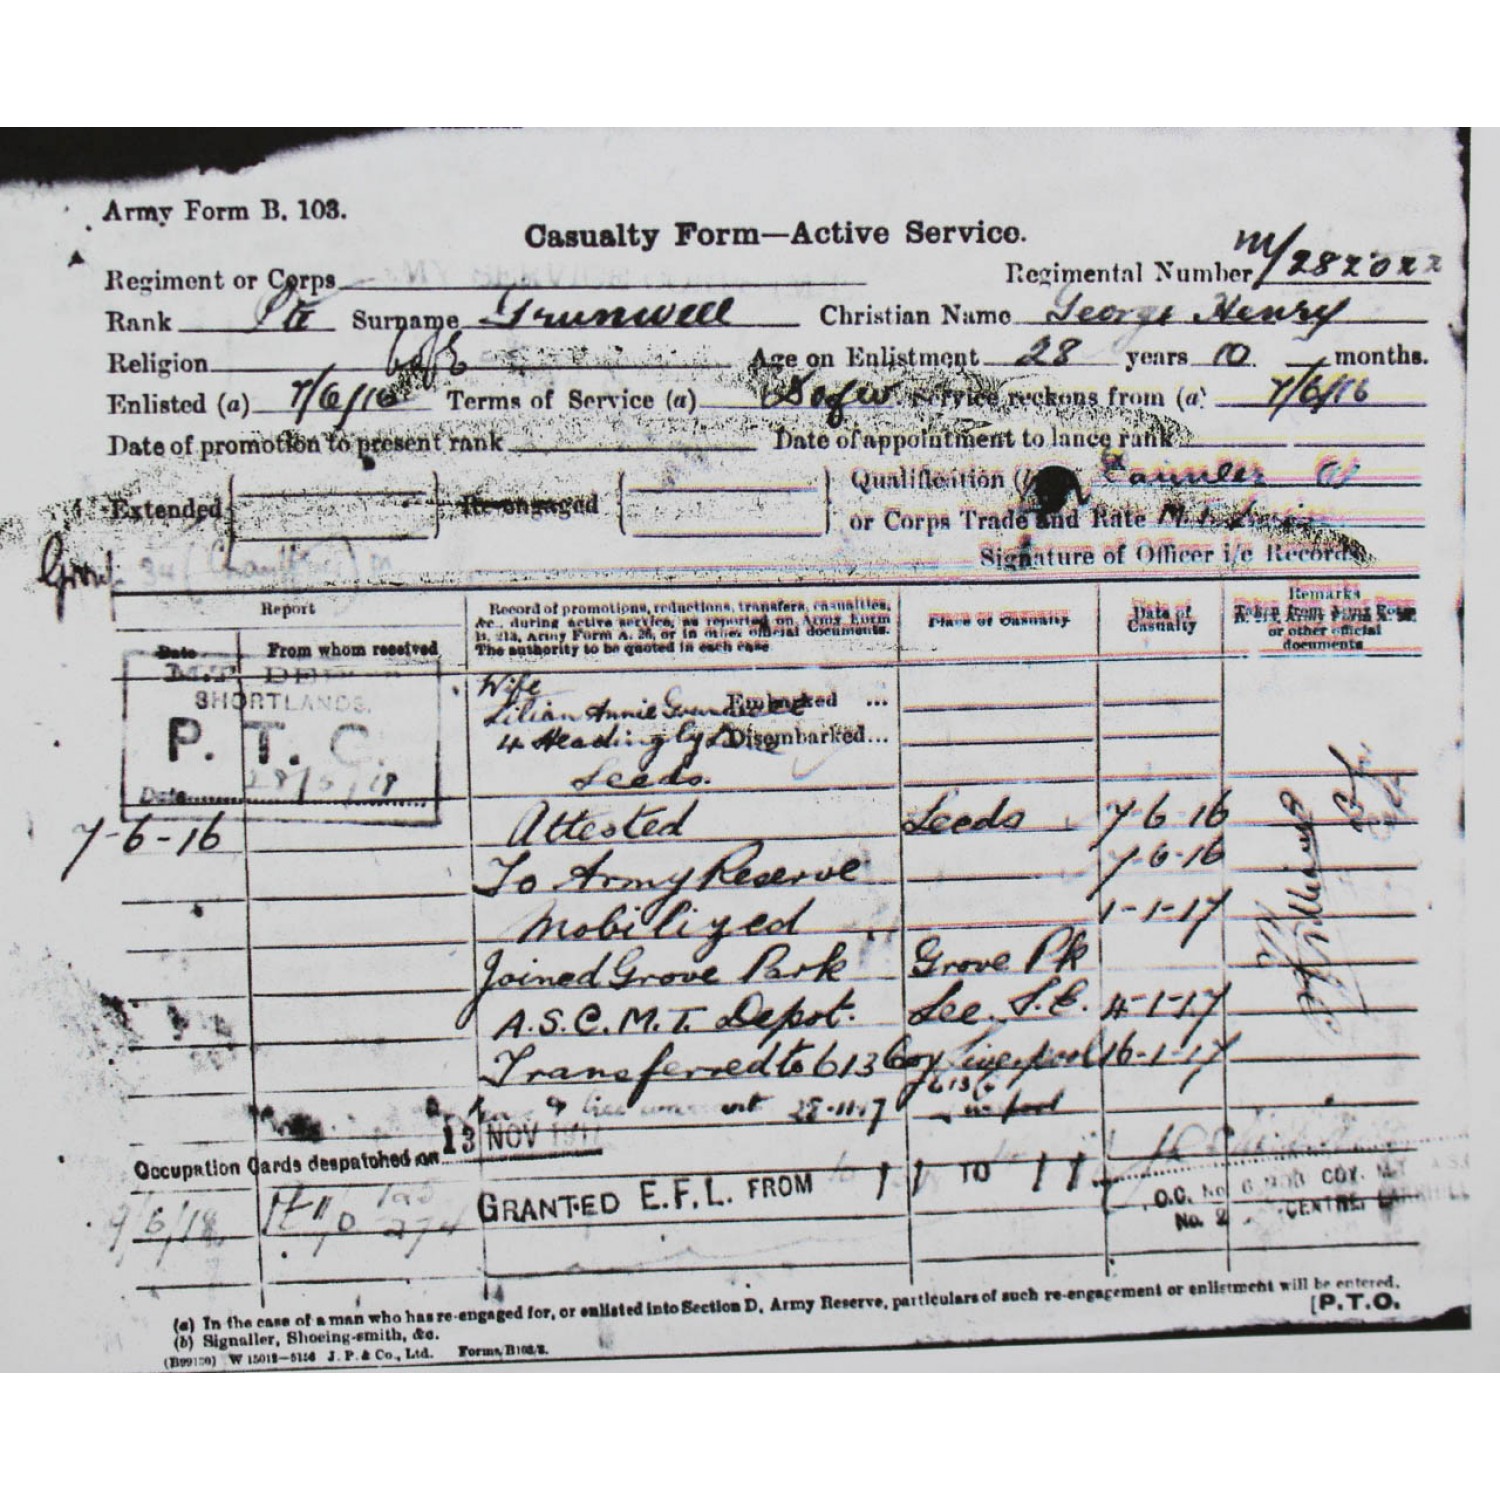 Army Form B. 103.
Casualty Form—Active Service.
Regiment or Corps
Regimental Number M/282022
Rank Pte Surname Grunwell Christian Name George Henry
Religion C of E Age on Enlistment 28 years 10 months.
Enlisted (a) 7/6/16 Terms of Service (a) D of W Service reckons from (a) 7/6/16
Date of promotion to present rank Date of appointment to lance rank
Extended Re-engaged Qualification (b)
or Corps Trade and Rate
Signature of Officer i/c Records
Group 34 (Chauffeur) M
Report
Date From whom received
Record of promotions, reductions, transfers, casualties, &c., during active service, as reported on Army Form B. 213, Army Form A. 36, or in other official documents. The authority to be quoted in each case
Place of Casualty
Date of Casualty
Remarks
Taken from Army Form B. 213, Army Form A. 36, or other official documents
M.T. DEPOT
SHORTLANDS.
P. T. C.
Date 28/5/18
Wife
Lilian Annie Grunwell Embarked ...
4 Headingly Disembarked...
Leeds.
7-6-16 Attested Leeds 7-6-16
To Army Reserve 7-6-16
Mobilized 1-1-17
Joined Grove Park Grove Pk
A.S.C. M.T. Depot. Lee. S.E. 4-1-17
Transferred to 613 Coy Liverpool 16-1-17
28-11-17 613
Occupation Cards despatched on 13 NOV 1917
9/6/18 274
GRANTED E.F.L. FROM / / TO / /
O.C. No COY. M.T. A.S.C.
No. 2 CENTRE,
(a) In the case of a man who has re-engaged for, or enlisted into Section D, Army Reserve, particulars of such re-engagement or enlistment will be entered.
(b) Signaller, Shoeing-smith, &c.
[P.T.O.
(B99130) W 15018—5156 J. P. & Co., Ltd. Forms/B103/2.